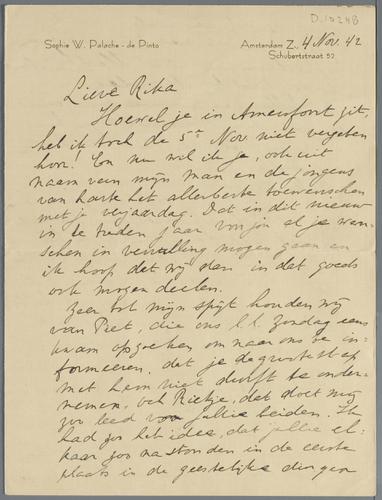 D.10248
Sophie W. Palache - de Pinto
Amsterdam Z., 4 Nov. 42
Schubertstraat 52
Lieve Rika
Hoewel je in Amersfoort zit,
heb ik toch de 5de Nov. niet vergeten
hoor! En nu wil ik je, ook uit
naam van mijn man en de jongens
van harte het allerbeste toewenschen
met je verjaardag. Dat in dit nieuw
in te treden jaar voor jou al je wen-
schen in vervulling mogen gaan en
ik hoop dat wij dan in dat goeds
ook mogen deelen.
Zeer tot mijn spijt hoorden wij
van Piet, die ons l.l. Zondag eens
kwam opzoeken om naar ons te in-
formeeren, dat je de
met hem niet durft te onder-
nemen, och Riekje, dat doet mij
zoo leed voor jullie beiden. Ik
had zoo het idee, dat jullie el-
kaar zoo na stonden in de eerste
plaats in de geestelijke dingen